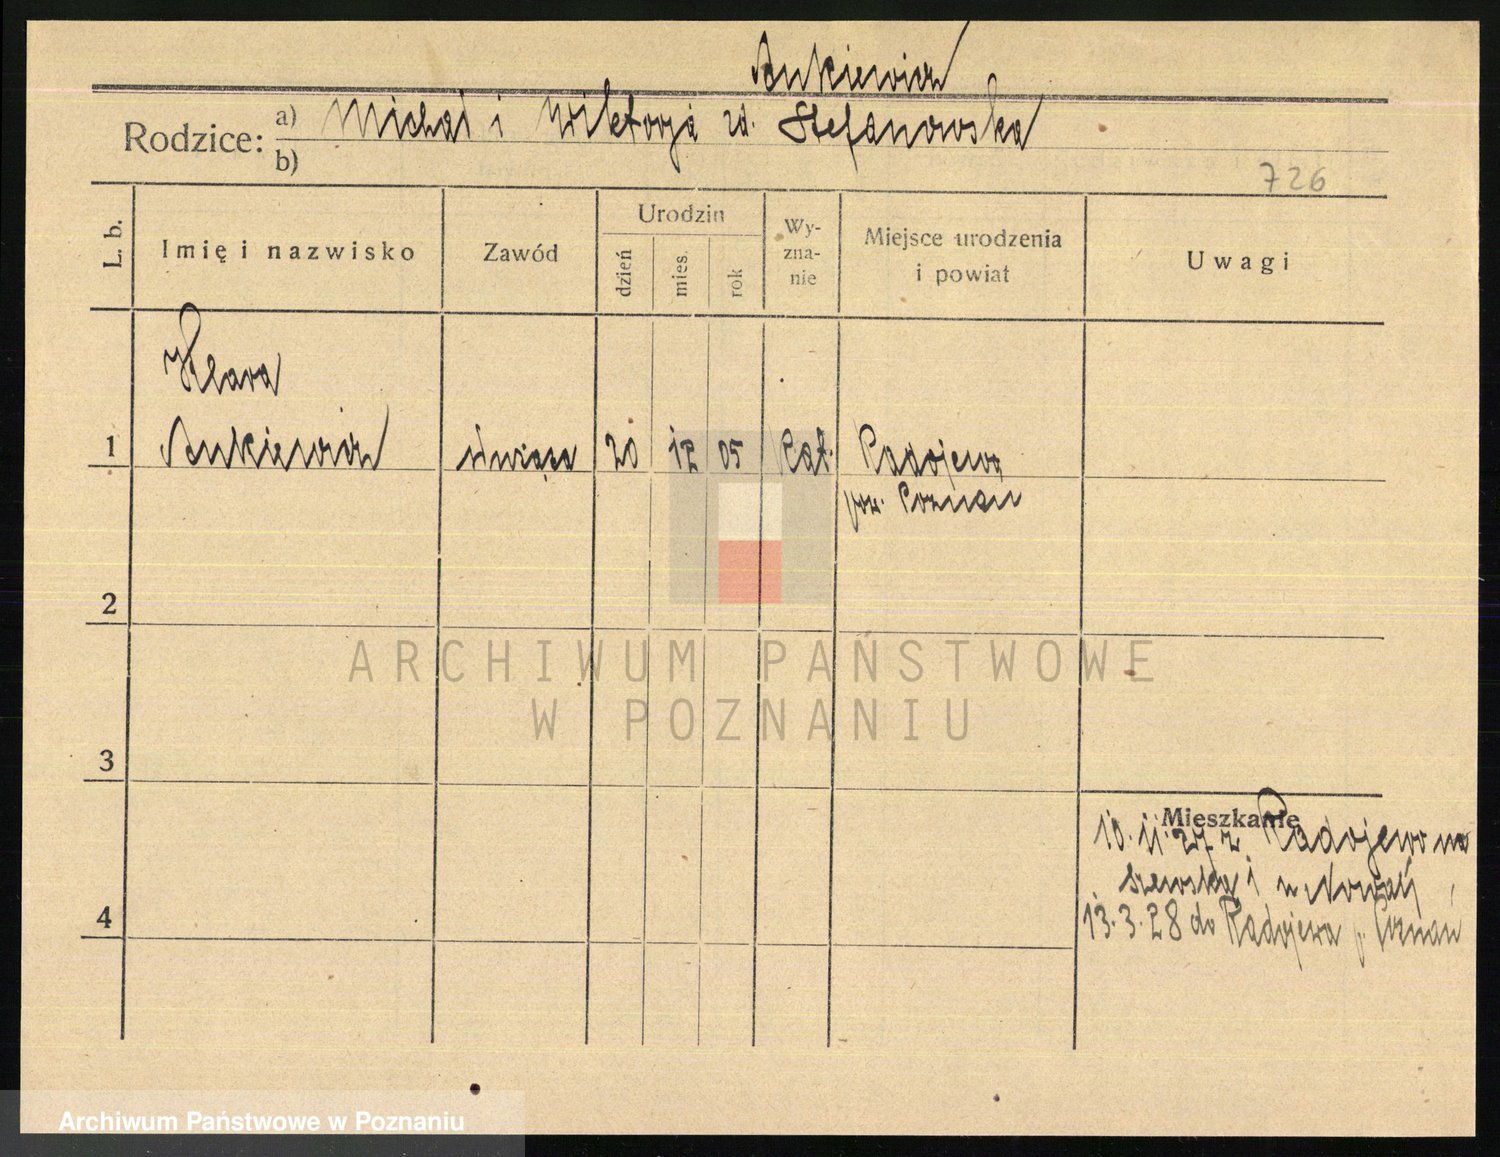 Ankiewicz
Rodzice: a) Michał i Wiktorja zd. Stefanowska
b)
726
L. b.
Imię i nazwisko
Zawód
Urodzin
dzień
mies.
rok
Wy-
zna-
nie
Miejsce urodzenia
i powiat
Uwagi
Klara
1 Ankiewicz służąca 20 12 05 kat. Radojewo
pow. Poznań
2
ARCHIWUM PAŃSTWOWE
W POZNANIU
3
Mieszkanie
10.11.27 z Radojewo na
Szewską i u Nowak
13.3.28 do Radojewa p. Poznań
4
Archiwum Państwowe w Poznaniu